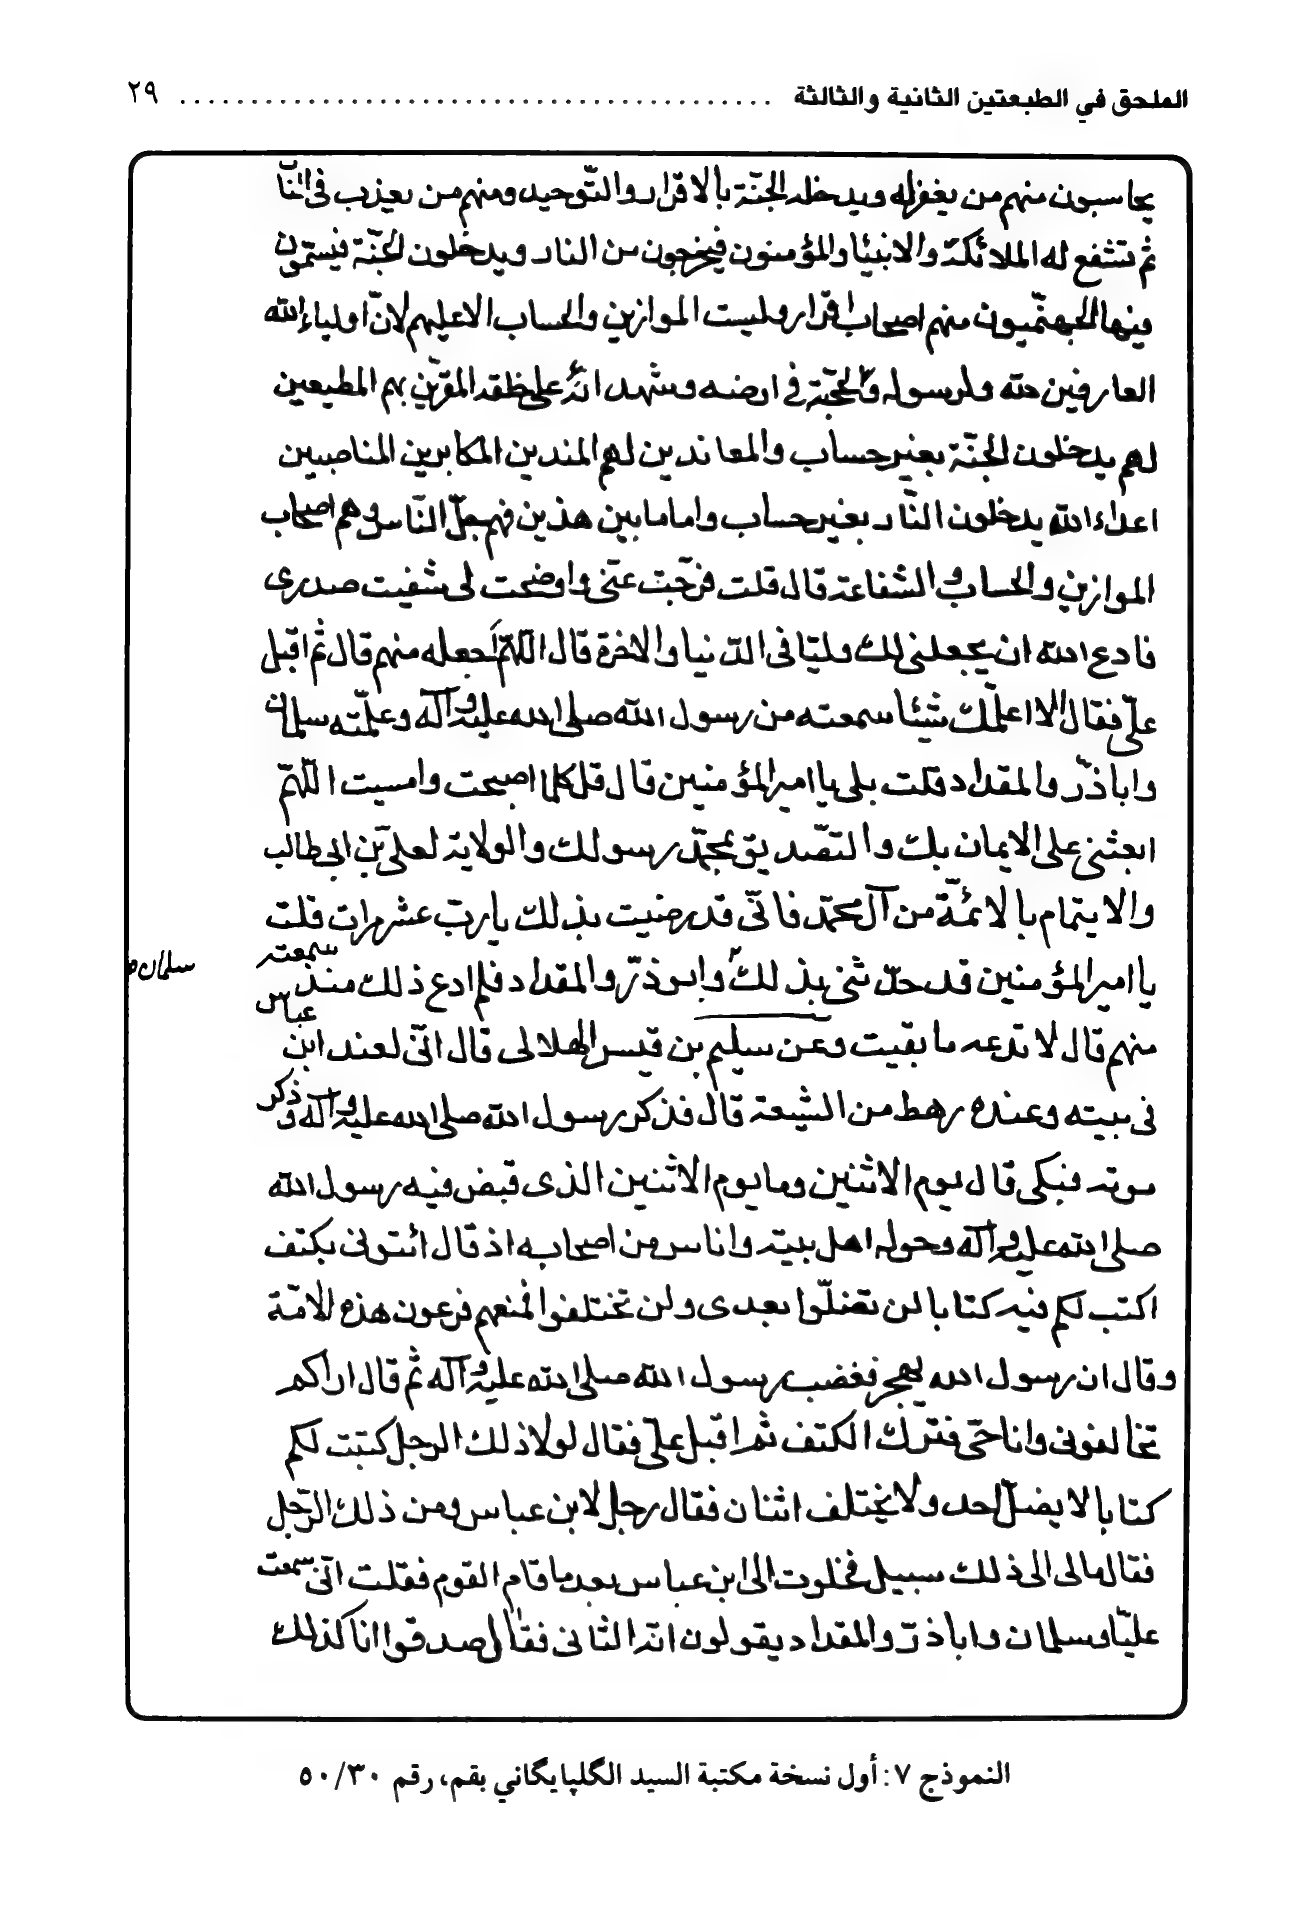 الملحق في الطبعتين الثانية والثالثة ........................................ ٢٩
يحاسبون منهم من يغفر له ويدخله الجنّة بالاقرار والتّوحيد ومنهم من يعذب فى النّا
ثم تشفع له الملائكة والانبيا والمؤمنون فيخرجون من النار ويدخلون الجنّة فيسمّون
فيها الجهنّميون منهم اصحاب اقرار وليست الموازين والحساب الا عليهم لانّ اولياء الله
العارفين لله ولرسوله والحجّة في ارضه وشهدائه على خلقه المقرّين بهم المطيعين
لهم يدخلون الجنّة بغير حساب والمعاندين لهم المندين المكابرين المناصبين
اعداء الله يدخلون النّار بغير حساب واما ما بين هذين فهم جلّ النّاس وهم اصحاب
الموازين والحساب والشفاعة قال قلت فرّجت عنّى واوضحت لى شفيت صدرى
فادع الله ان يجعلنى لك وليّا فى الدّنيا والاخرة قال اللّهمّ اجعله منهم قال ثم اقبل
علىّ فقال الا اعلّمك شيئا سمعته من رسول الله صلى الله عليه وآله وعلّمته سلمان
واباذرّ والمقداد قلت بلى يا امير المؤمنين قال قل كلما اصبحت وامسيت اللّهمّ
ابعثنى على الايمان بك والتصّديق بمحمّد رسولك والولاية لعلىّ بن ابى طالب
والايتمام بالائمّة من آل محمّد فانّى قد رضيت بذلك يا ربّ عشر مرات قلت
يا امير المؤمنين قد حدّثنى بذلك وابوذرّ والمقداد فلم ادع ذلك منذ سمعته
سلمان
منهم قال لا تدعه ما بقيت وعن سليم بن قيس الهلالى قال انّى لعند ابن عباس
فى بيته وعنده رهط من الشيعة قال فذكر رسول الله صلى الله عليه وآله وذكر
موته فبكى قال يوم الاثنين وما يوم الاثنين الذى قبض فيه رسول الله
صلى الله عليه وآله وحوله اهل بيته واناس من اصحابه اذ قال ائتونى بكتف
اكتب لكم فيه كتابا لن تضلّوا بعدى ولن تختلفوا فمنعهم فرعون هذه الامّة
وقال ان رسول الله يهجر فغضب رسول الله صلى الله عليه وآله ثم قال اراكم
تخالفونى وانا حىّ فترك الكتف ثم اقبل علىّ فقال لولا ذلك الرجل كتبت لكم
كتابا لا يضلّ احد ولا يختلف اثنان فقال رجل لابن عباس ومن ذلك الرّجل
فقال مالى الى ذلك سبيل فخلوت الى ابن عباس بعد ما قام القوم فقلت انّى سمعت
عليّا وسلمان واباذرّ والمقداد يقولون انّه الثانى فقال صدقوا انا كذلك
النموذج ٧: أول نسخة مكتبة السيد الگلپايگاني بقم، رقم ٥٠/٣٠